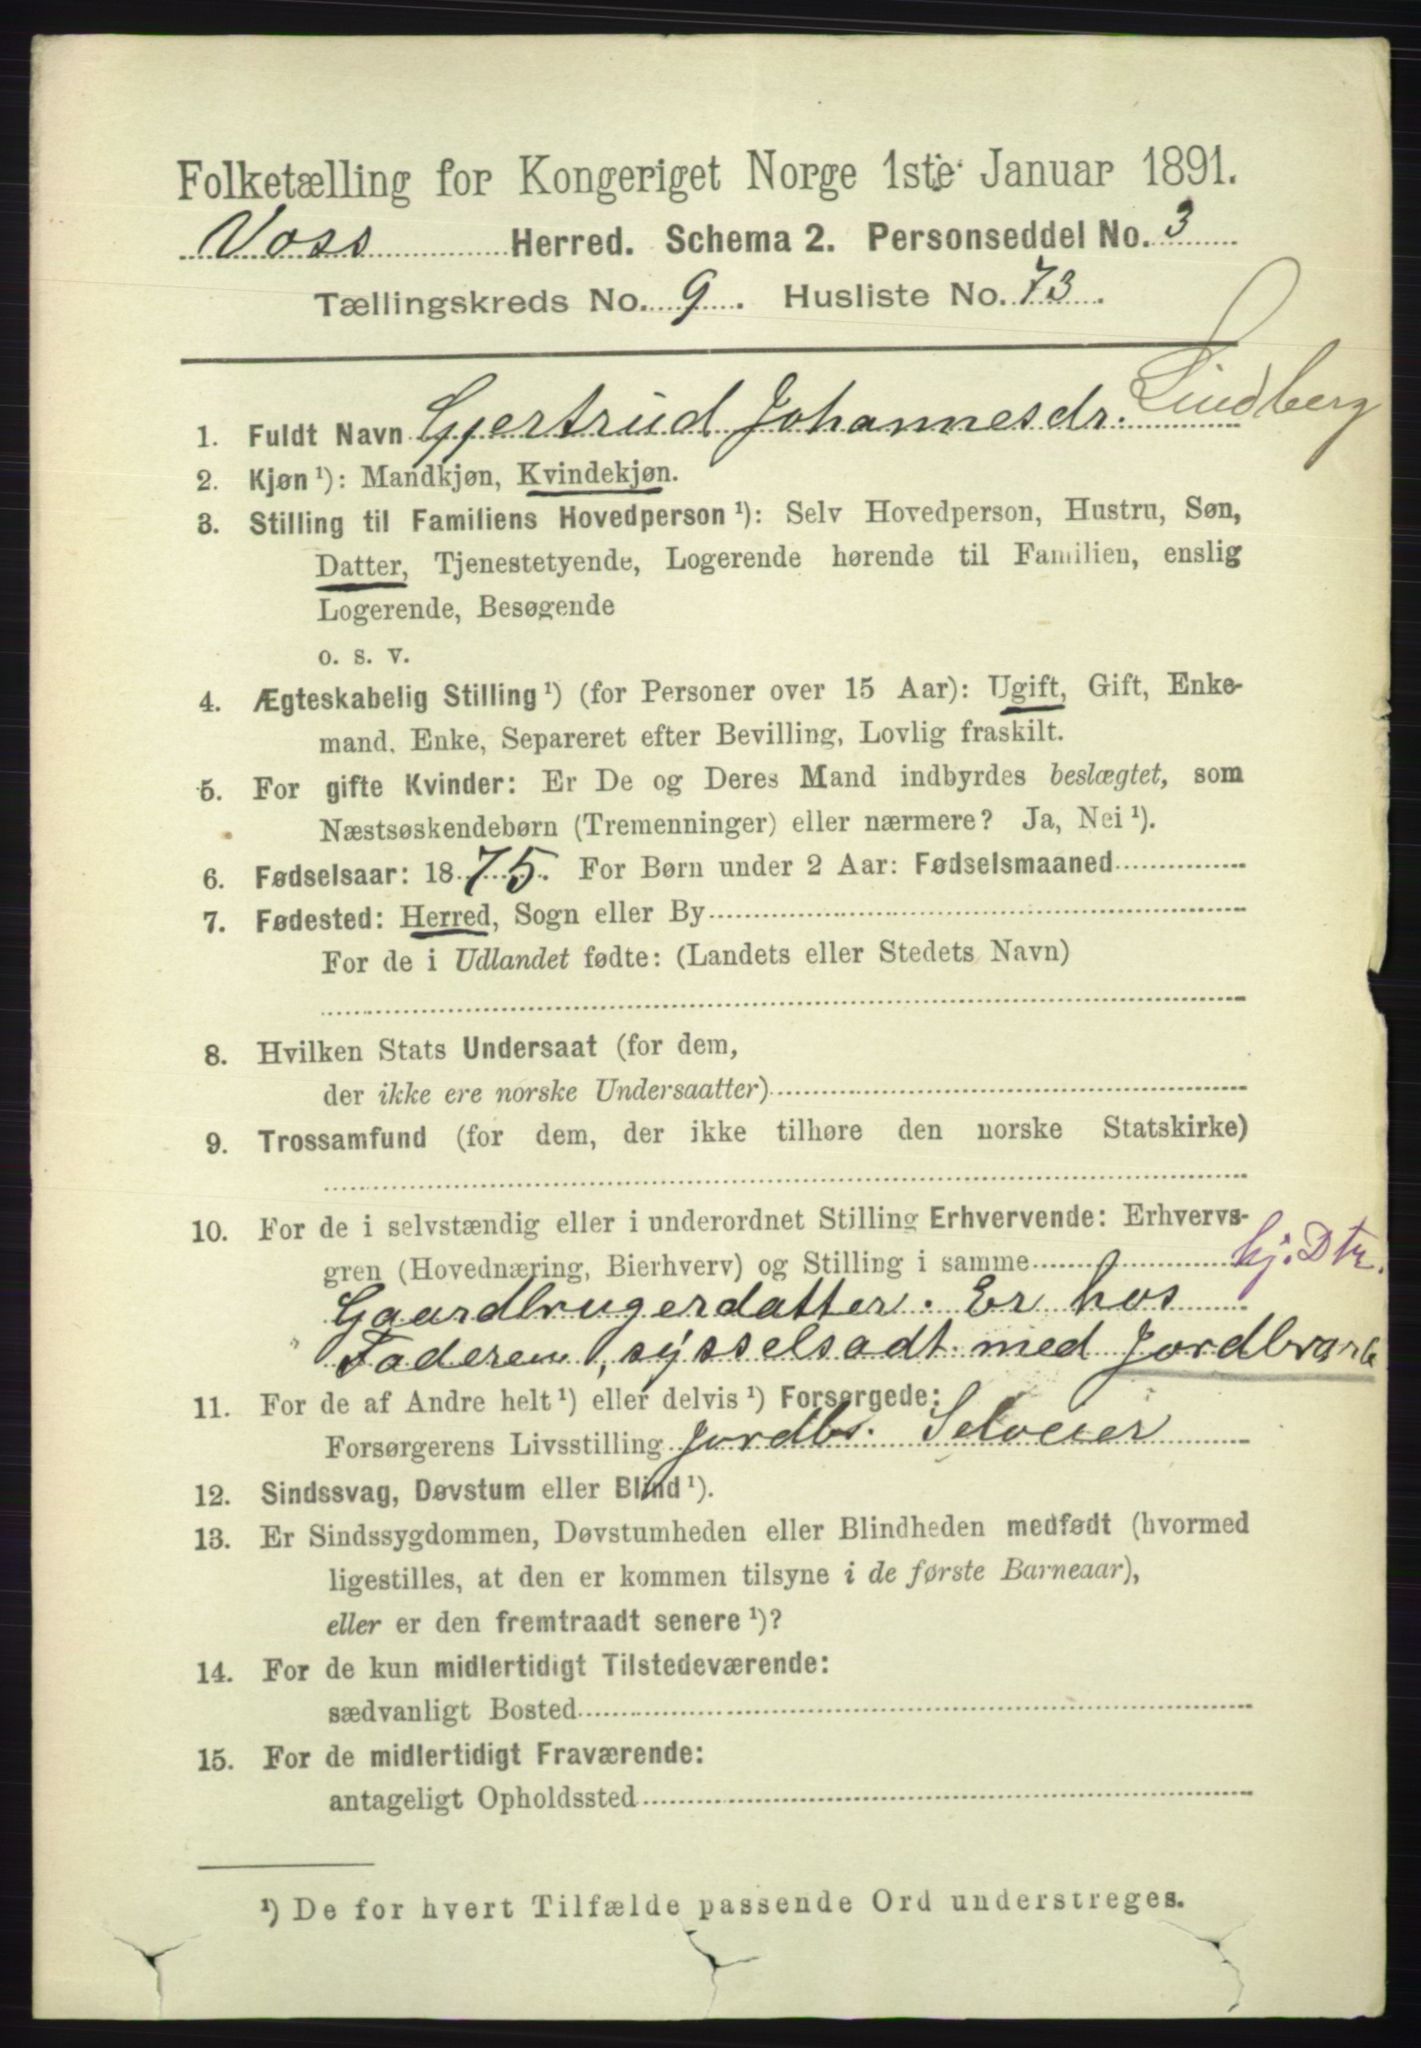 Folketælling for Kongeriget Norge 1ste Januar 1891.
Voss Herred. Schema 2. Personseddel No. 3
Tællingskreds No. 9. Husliste No. 73.
1. Fuldt Navn Gjertrud Johannesdr. Lindberg
2. Kjøn ¹): Mandkjøn, Kvindekjøn.
3. Stilling til Familiens Hovedperson ¹): Selv Hovedperson, Hustru, Søn,
Datter, Tjenestetyende, Logerende hørende til Familien, enslig
Logerende, Besøgende
o. s. v.
4. Ægteskabelig Stilling ¹) (for Personer over 15 Aar): Ugift, Gift, Enke-
mand, Enke, Separeret efter Bevilling, Lovlig fraskilt.
5. For gifte Kvinder: Er De og Deres Mand indbyrdes beslægtet, som
Næstsøskendebørn (Tremenninger) eller nærmere? Ja, Nei ¹).
6. Fødselsaar: 1875. For Børn under 2 Aar: Fødselsmaaned
7. Fødested: Herred, Sogn eller By
For de i Udlandet fødte: (Landets eller Stedets Navn)
8. Hvilken Stats Undersaat (for dem,
der ikke ere norske Undersaatter)
9. Trossamfund (for dem, der ikke tilhøre den norske Statskirke)
10. For de i selvstændig eller i underordnet Stilling Erhvervende: Erhvervs-
gren (Hovednæring, Bierhverv) og Stilling i samme hj. Dtr.
Gaardbrugerdatter. Er hos
Faderen, sysselsadt med Jordbrug
11. For de af Andre helt ¹) eller delvis ¹) Forsørgede:
Forsørgerens Livsstilling Jordbr. Selveier
12. Sindssvag, Døvstum eller Blind ¹).
13. Er Sindssygdommen, Døvstumheden eller Blindheden medfødt (hvormed
ligestilles, at den er kommen tilsyne i de første Barneaar),
eller er den fremtraadt senere ¹)?
14. For de kun midlertidigt Tilstedeværende:
sædvanligt Bosted
15. For de midlertidigt Fraværende:
antageligt Opholdssted
¹) De for hvert Tilfælde passende Ord understreges.